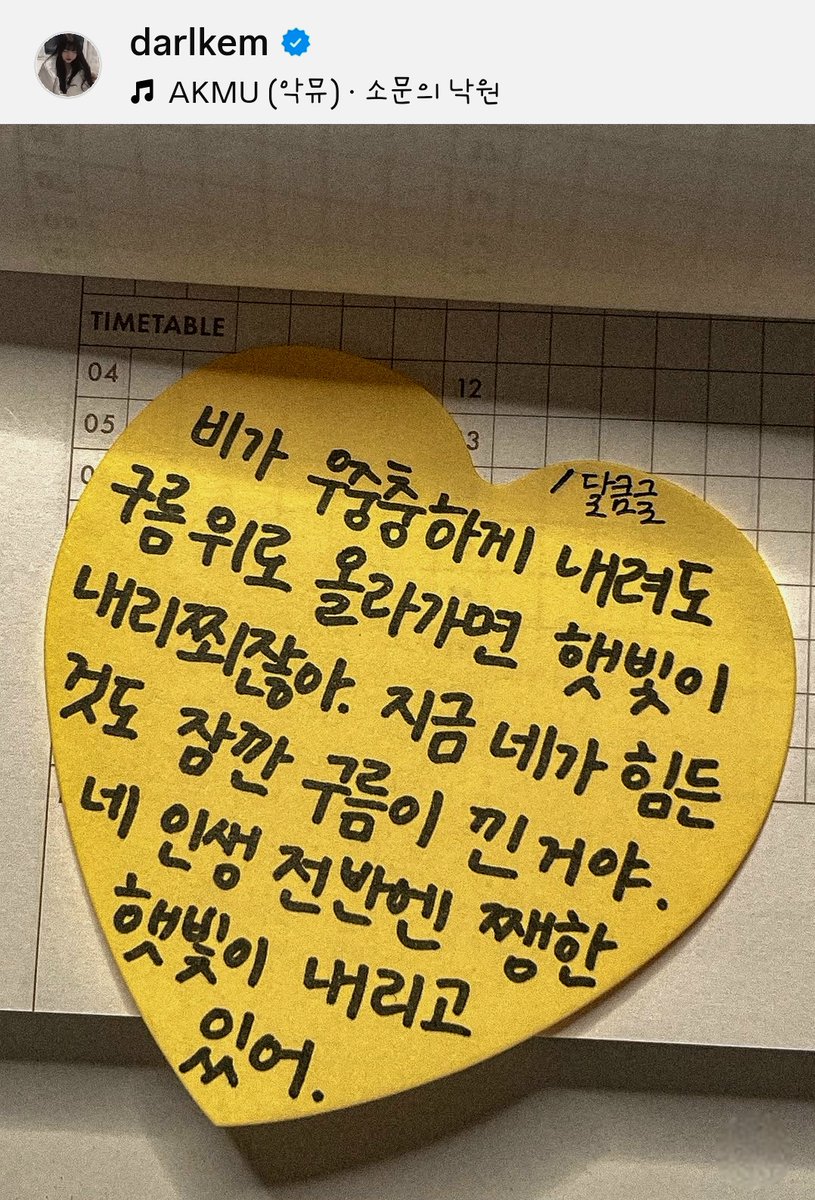 darlkem
AKMU (악뮤) · 소문의 낙원
TIMETABLE
04
05
12
3
/달큼글
비가 우중충하게 내려도
구름 위로 올라가면 햇빛이
내리쬐잖아. 지금 네가 힘든
것도 잠깐 구름이 낀 거야.
네 인생 전반엔 쨍한
햇빛이 내리고
있어.